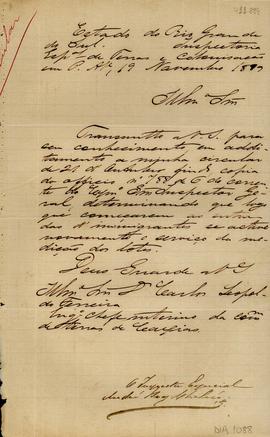 Estado do Rio Grande
do Sul. Inspectoria
Esp.al de Terras e Colonisação
em P. A., 19 Novembro 1889
Illmo Snr
Transmitto a V. S. para
seu conhecimento em addi-
tamento a minha circular
de 21 d' findo, copia
do officio n.º 58 de 6 do corrente
do Inspector Ge-
ral, determinando que logo
que começarem as entra-
das d'immigrantes se active
o serviço da me-
dição dos lotes.
Deus Guarde a V. S.
Illmo Snr Dr Carlos Leopol-
do Ferreira
Engo Chefe interino da Com
de terras de Caxias
O Inspector Especial
DIA 1088